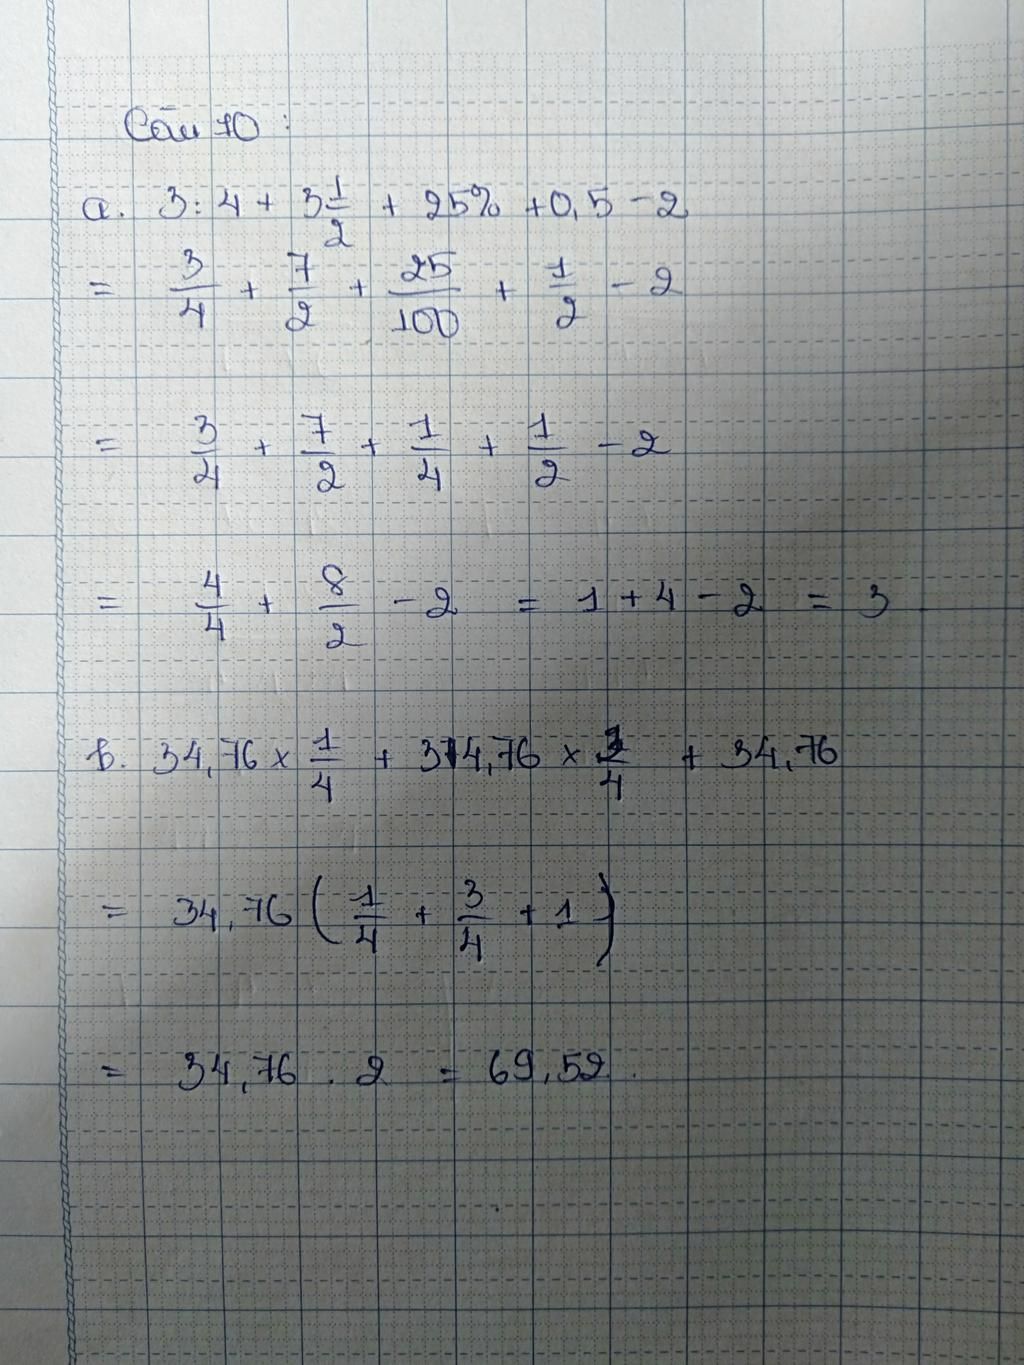 Câu 10 :
a. 3 : 4 + 3 1/2 + 25% + 0,5 - 2
= 3/4 + 7/2 + 25/100 + 1/2 - 2
= 3/4 + 7/2 + 1/4 + 1/2 - 2
= 4/4 + 8/2 - 2 = 1 + 4 - 2 = 3
b. 34,76 x 1/4 + 34,76 x 3/4 + 34,76
= 34,76 ( 1/4 + 3/4 + 1 )
= 34,76 . 2 = 69,52.